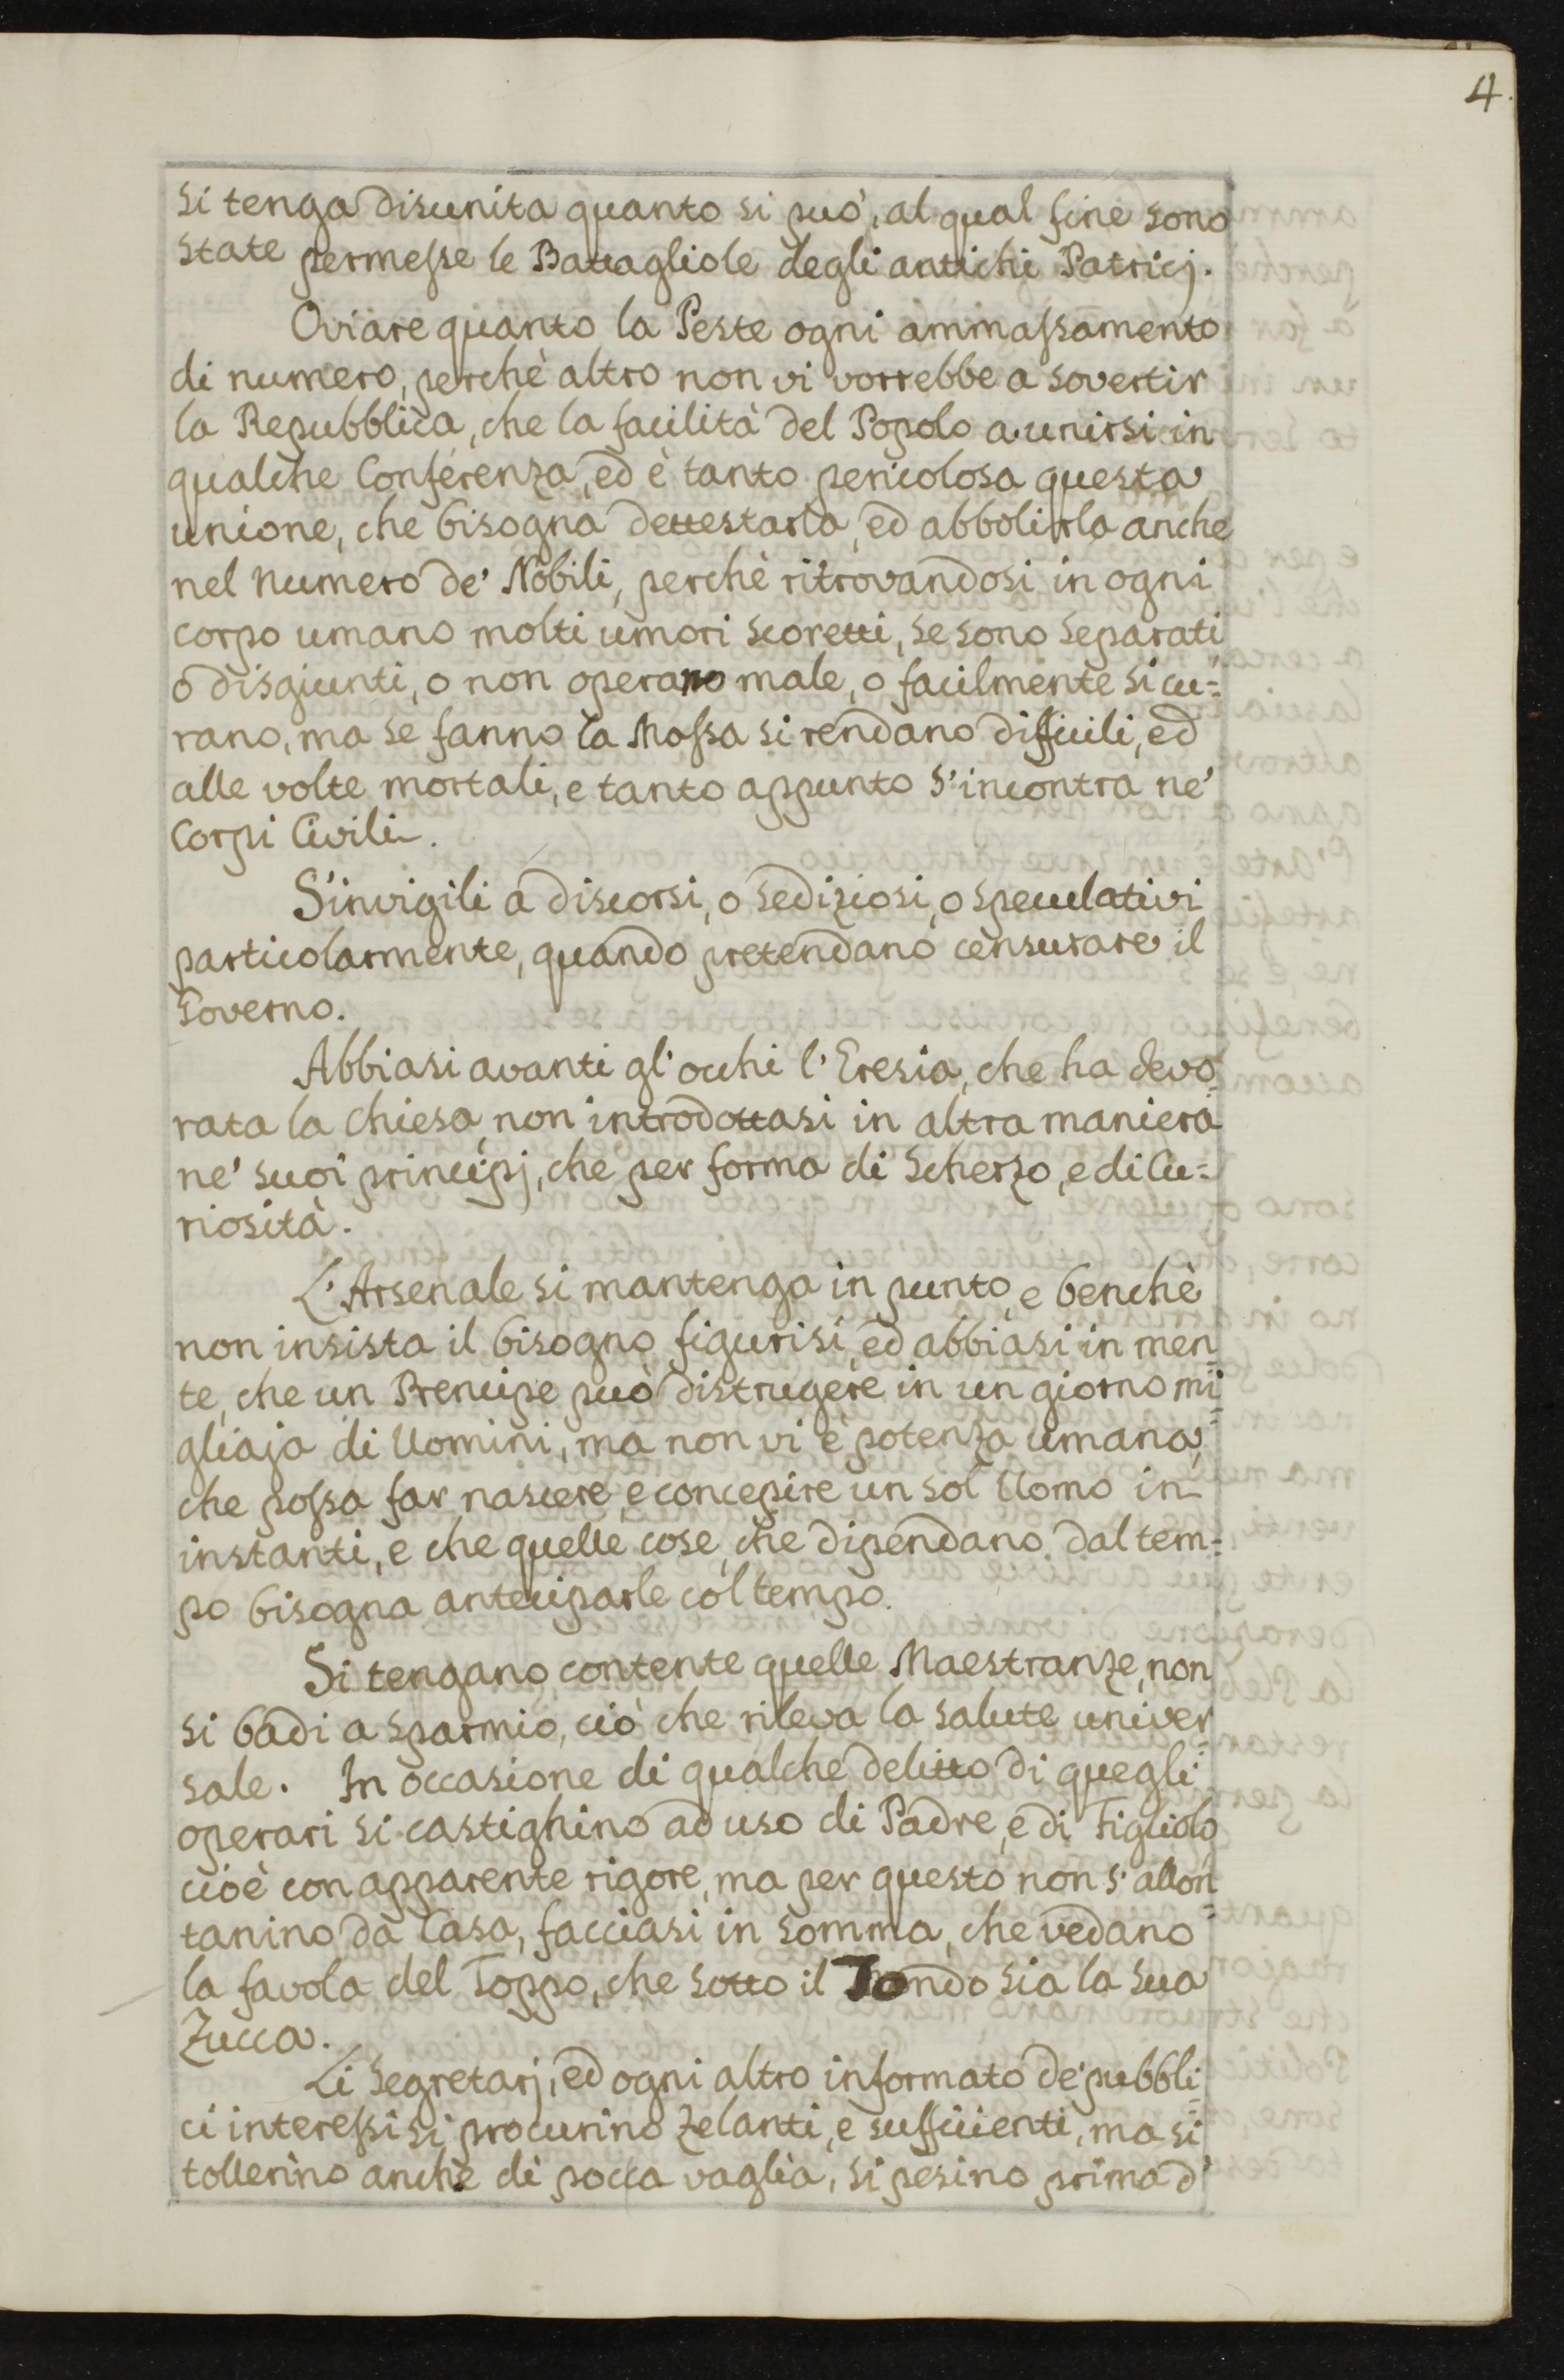 4.
si tenga disunita quanto si può, al qual fine sono
state permesse le Battagliole degli antichi Patricj.
Oviare quanto la Peste ogni ammassamento
di numero, perchè altro non vi vorrebbe a sovertir
la Repubblica, che la facilità del Popolo a unirsi in
qualche Conferenza, ed è tanto pericolosa questa
unione, che bisogna dettestarla, ed abbolirla anche
nel numero de' Nobili, perchè ritrovandosi in ogni
corpo umano molti umori scoretti, se sono separati
o disgiunti, o non operano male, o facilmente si cu=
rano, ma se fanno la Massa si rendano difficili, ed
alle volte mortali, e tanto appunto s'incontra ne'
Corpi Civili.
S'invigili a discorsi, o sediziosi, o speculativi
particolarmente, quando pretendano censurare il
Governo.
Abbiasi avanti gl'occhi l'Eresia, che ha devo=
rata la Chiesa, non introdottasi in altra maniera
ne' suoi principj, che per forma di scherzo, e di Cu=
riosità.
L'Arsenale si mantenga in punto, e benchè
non insista il bisogno figurisi, ed abbiasi in men=
te, che un Prencipe può distrugere in un giorno mi=
gliaja di Uomini, ma non vi è potenza umana,
che possa far nascere, e concepire un sol Uomo in
instanti, e che quelle cose, che dipendano dal tem=
po bisogna anteciparle col tempo.
Si tengano contente quelle Maestranze, non
si badi a sparmio, ciò che rileva la salute univer=
sale. In occasione di qualche delitto di quegli
operari si castighino ad uso di Padre, e di Figliolo
cioè con apparente rigore, ma per questo non s'allon=
tanino da Casa, facciasi in somma, che vedano
la favola del Toppo, che sotto il Tondo sia la sua
Zucca.
Li Segretarj, ed ogni altro informato de' pubbli=
ci interessi si procurino zelanti, e sufficienti, ma si
tollerino anche di pocca vaglia, si pesino prima d'